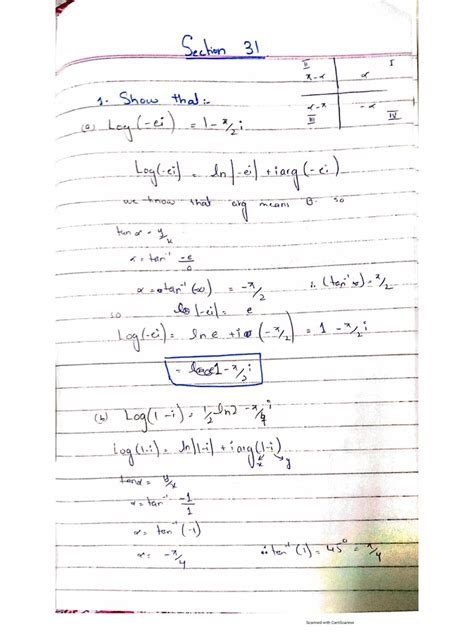 Section 31
II I
π-α α
α-π -α
III IV
1- Show that:-
(a) Log(-ei) = 1-π/2 i
Log(-ei) = ln|-ei| + i arg(-ei)
we know that arg means θ so
tan α = y/x
α = tan⁻¹ -e/0
α = -tan⁻¹(∞) = -π/2 ∴ (tan⁻¹ ∞) = π/2
so |-ei| = e
Log(-ei) = ln e + i (-π/2) = 1 - π/2 i
= 1 - π/2 i
(b) Log(1-i) = 1/2 ln2 - π/4 i
Log(1-i) = ln|1-i| + i arg(1-i)
x y
tan α = y/x
α = tan⁻¹ -1/1
α = tan⁻¹(-1)
α = -π/4 ∴ tan⁻¹(1) = 45° = π/4
Scanned with CamScanner